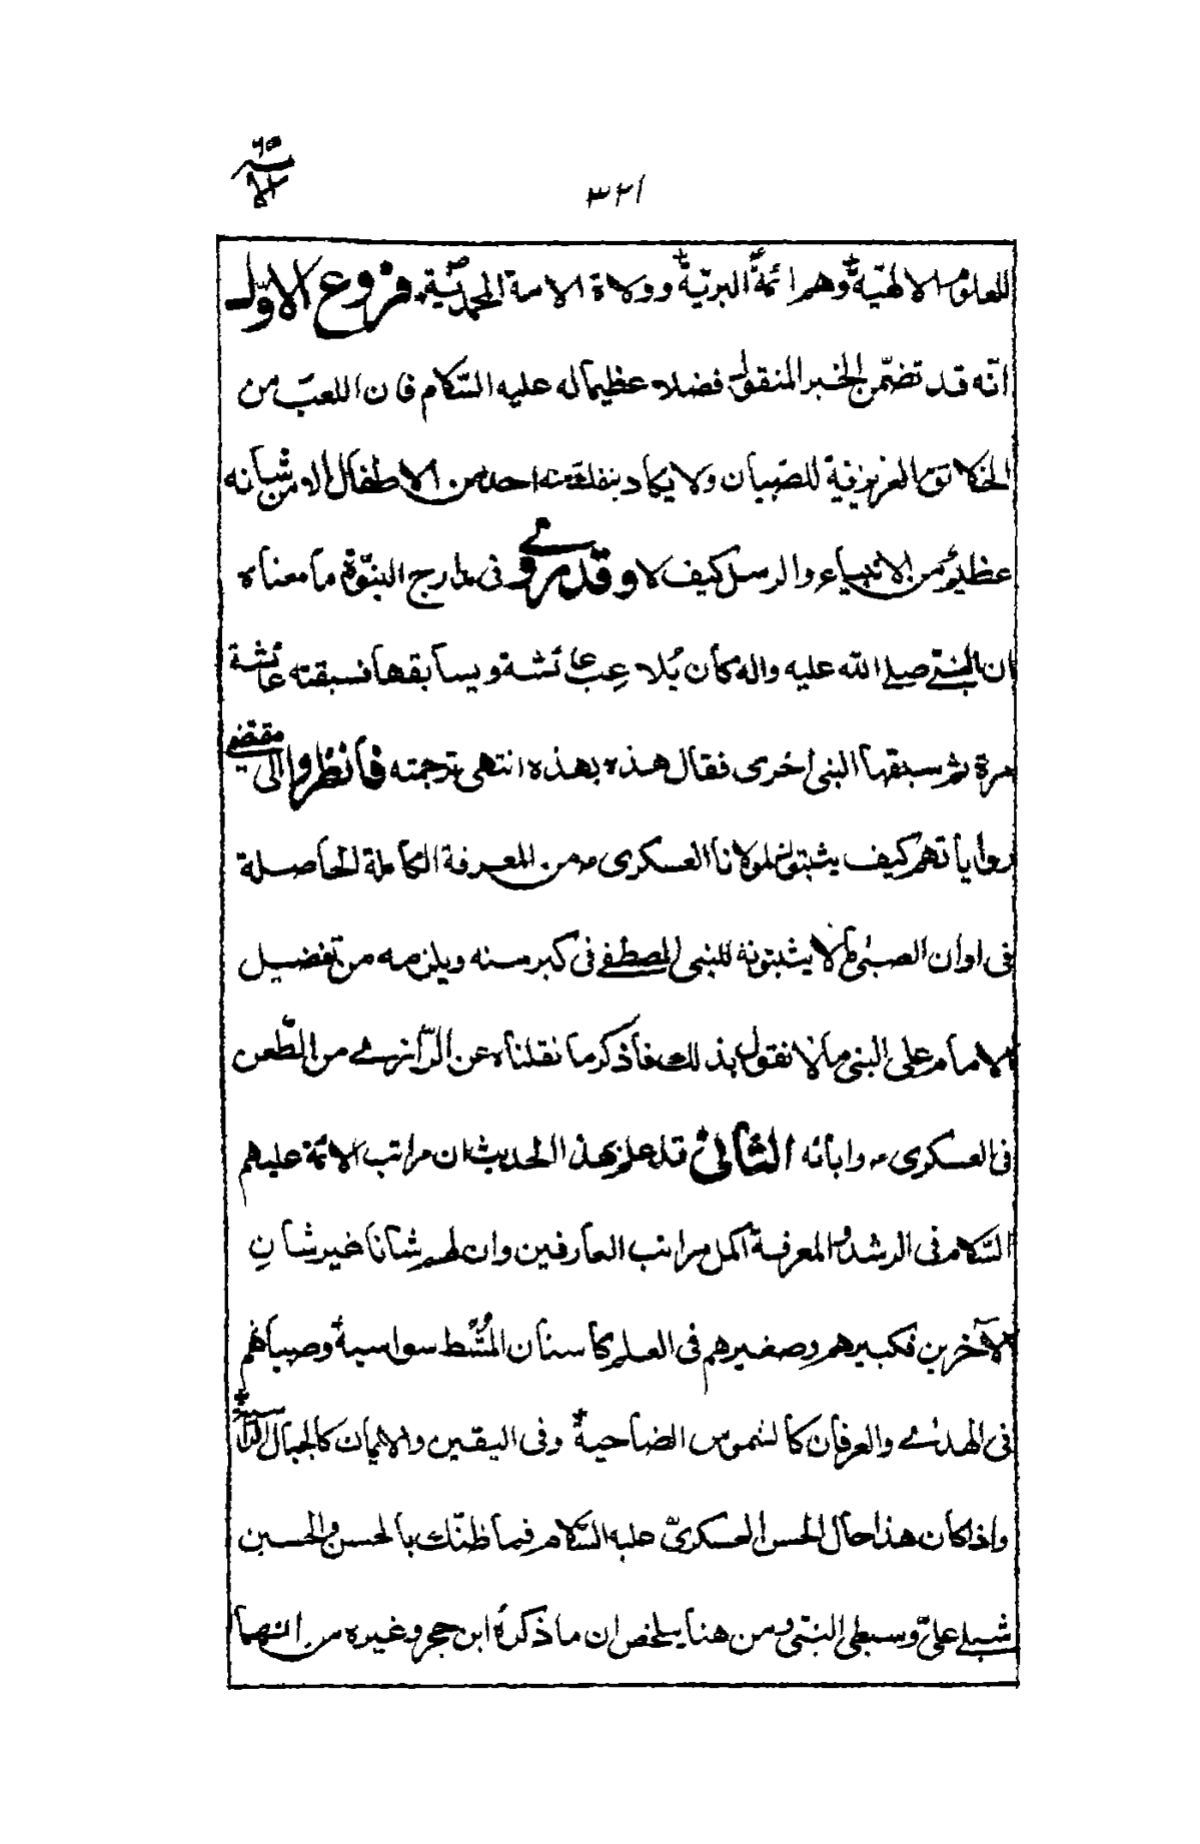 ٣٢١
للعلوم الالهيّة وهم ائمّة البريّة وولاة الامة المحمديّة فروع الاوّل
انّه قد تضمّن الخبر المنقول فضلا عظيما له عليه السّلام فان اللعب من
العزيزية للصّبيان ولا يكاد احد من الاطفال الا من شانه
عظيم من الانبياء والرسل كيف لا وقد مرّ فى مدارج النبوّة ما معناه
ان النبىّ صلے الله عليه واله كان يُلاعِب عائشة ويسابقها فسبقته عائشة
مرة ثم سبقها النبى اخرى فقال هذه بهذه انتهى ترجمته فانظروا الى مقتضے
رواياتهم كيف يثبتون لمولانا العسكرى من المعرفة الكاملة الحاصلة
فى اوان الصبى ما لا يثبتونه للنبى المصطفے فى كبر سنه ويلزمه من تفضيل
الامام على النبى ما لا نقول بذلك فاذكر ما نقلناه عن الرّازے من الطّعن
فى العسكرى وابائه الثانى قد علم بهذا الحديث ان مراتب الائمة عليهم
السّلام فى الرشد والمعرفة اكمل مراتب العارفين وان لهم شانا غير شانِ
الآخرين فكبيرهم وصغيرهم فى العلم كاسنان المُشط سواسية وصبيانهم
فى الهدے والعرفان كالشموس الضاحية وفى اليقين والايمان كالجبال الراسية
واذا كان هذا حال الحسن العسكرىّ عليه السّلام فما ظنّك بالحسن والحسين
شبلے علىّ وسبطى النبى ومن هنا يلخص ان ما ذكره ابن حجر وغيره من انهما